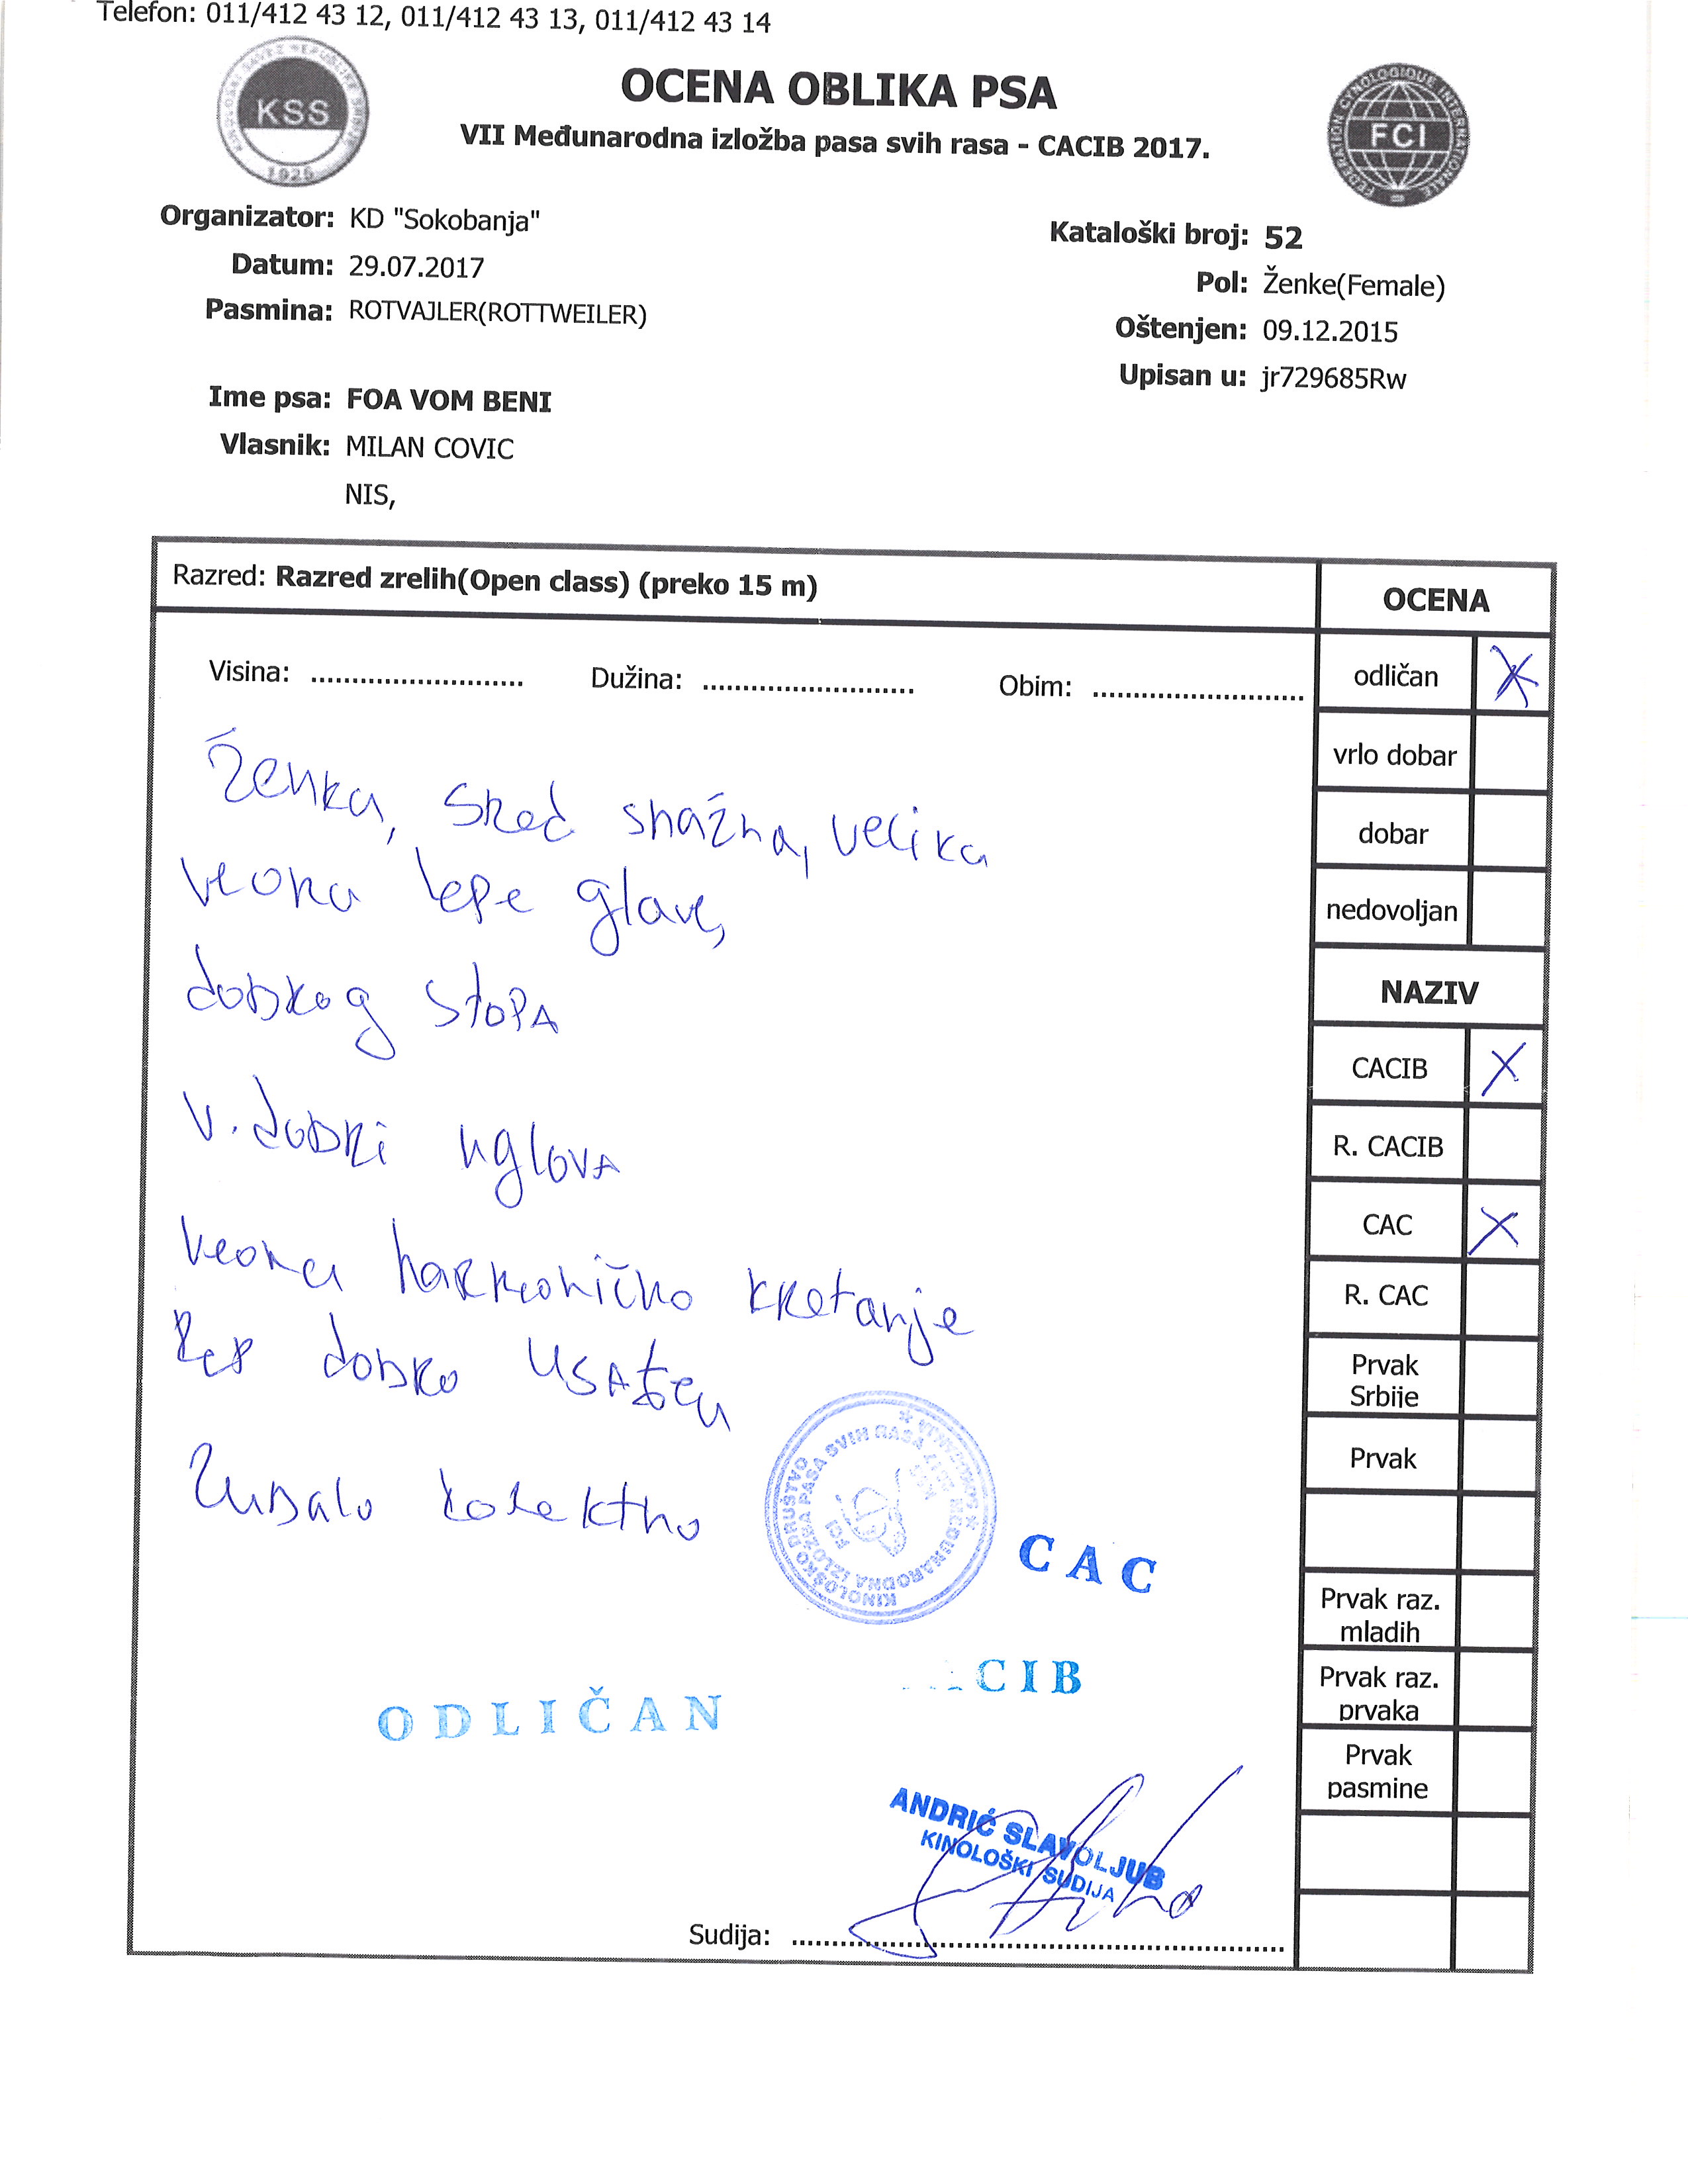 Telefon: 011/412 43 12, 011/412 43 13, 011/412 43 14
KSS
1925
OCENA OBLIKA PSA
VII Međunarodna izložba pasa svih rasa - CACIB 2017.
FEDERATION CYNOLOGIQUE INTERNATIONALE
FCI
Organizator: KD "Sokobanja"
Datum: 29.07.2017
Pasmina: ROTVAJLER(ROTTWEILER)
Kataloški broj: 52
Pol: Ženke(Female)
Oštenjen: 09.12.2015
Upisan u: jr729685Rw
Ime psa: FOA VOM BENI
Vlasnik: MILAN COVIC
NIS,
Razred: Razred zrelih(Open class) (preko 15 m)
Visina: .......................... Dužina: .......................... Obim: ..........................
Ženka, sred snažna, velika
veoma lepe glave,
dobrog stopa
v. dobri uglova
veoma harmonično kretanje
Rep dobro usađen
Zubalo korektno
KINOLOŠKO DRUŠTVO
MEĐUNARODNA IZLOŽBA PASA SVIH RASA
FCI
CAC
CIB
ODLIČAN
ANDRIĆ SLAVOLJUB
KINOLOŠKI SUDIJA
Sudija: ..........................
OCENA
odličan X
vrlo dobar
dobar
nedovoljan
NAZIV
CACIB X
R. CACIB
CAC X
R. CAC
Prvak
Srbije
Prvak
Prvak raz.
mladih
Prvak raz.
prvaka
Prvak
pasmine